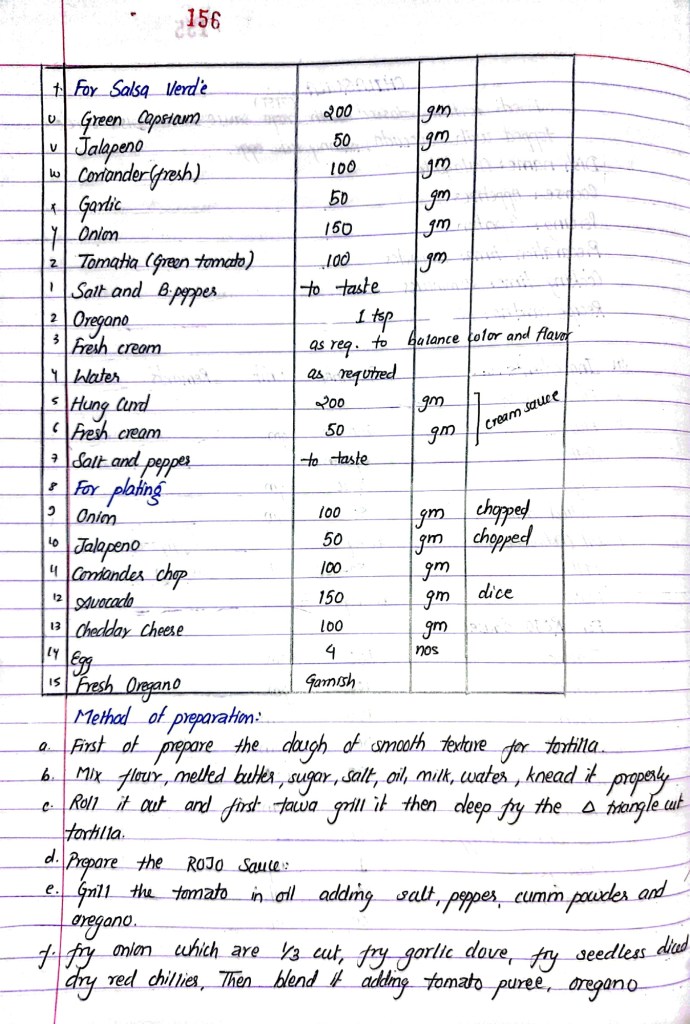 156
t. For Salsa Verde
u Green Capsium 200 gm
v Jalapeno 50 gm
w Coriander (fresh) 100 gm
x Garlic 50 gm
y Onion 150 gm
z Tomatia (Green tomato) 100 gm
1 Salt and B.pepper to taste
2 Oregano 1 tsp
3 Fresh cream as req. to balance color and flavor
4 Water as required
5 Hung Curd 200 gm ] cream sauce
6 Fresh cream 50 gm
7 Salt and pepper to taste
8 For plating
9 Onion 100 gm chopped
10 Jalapeno 50 gm chopped
11 Corriander chop 100 gm
12 Avocado 150 gm dice
13 Cheddar cheese 100 gm
14 Egg 4 nos
15 Fresh Oregano Garnish
Method of preparation:
a. First of prepare the dough of smooth texture for tortilla.
b. Mix flour, melted butter, sugar, salt, oil, milk, water, knead it properly
c. Roll it out and first tawa grill it then deep fry the Δ triangle cut
tortilla.
d. Prepare the ROJO Sauce:
e. Grill the tomato in oil adding salt, pepper, cumin powder and
oregano.
f. fry onion which are 1/3 cut, fry garlic clove, fry seedless diced
dry red chillies, Then blend it adding tomato puree, oregano